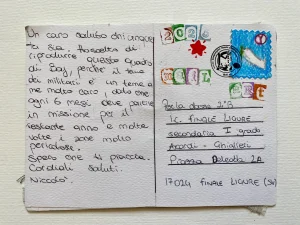 Un caro saluto chiunque
tu sia, ho scelto di
riprodurre questo quadro
di Bay, perché il tema
dei militari è un tema a
me molto caro, dato che
ogni 6 mesi deve partire
in missione per il
restante anno e molte
volte in zone molto
pericolose.
Spero che ti piaccia.
Cordiali saluti.
Niccolò.
2024
MAIL
ART
Per la classe 2ªB
I.C. FINALE LIGURE
secondaria I grado
Aicardi - Ghiglieri
Piazza
17024 FINALE LIGURE (SV)